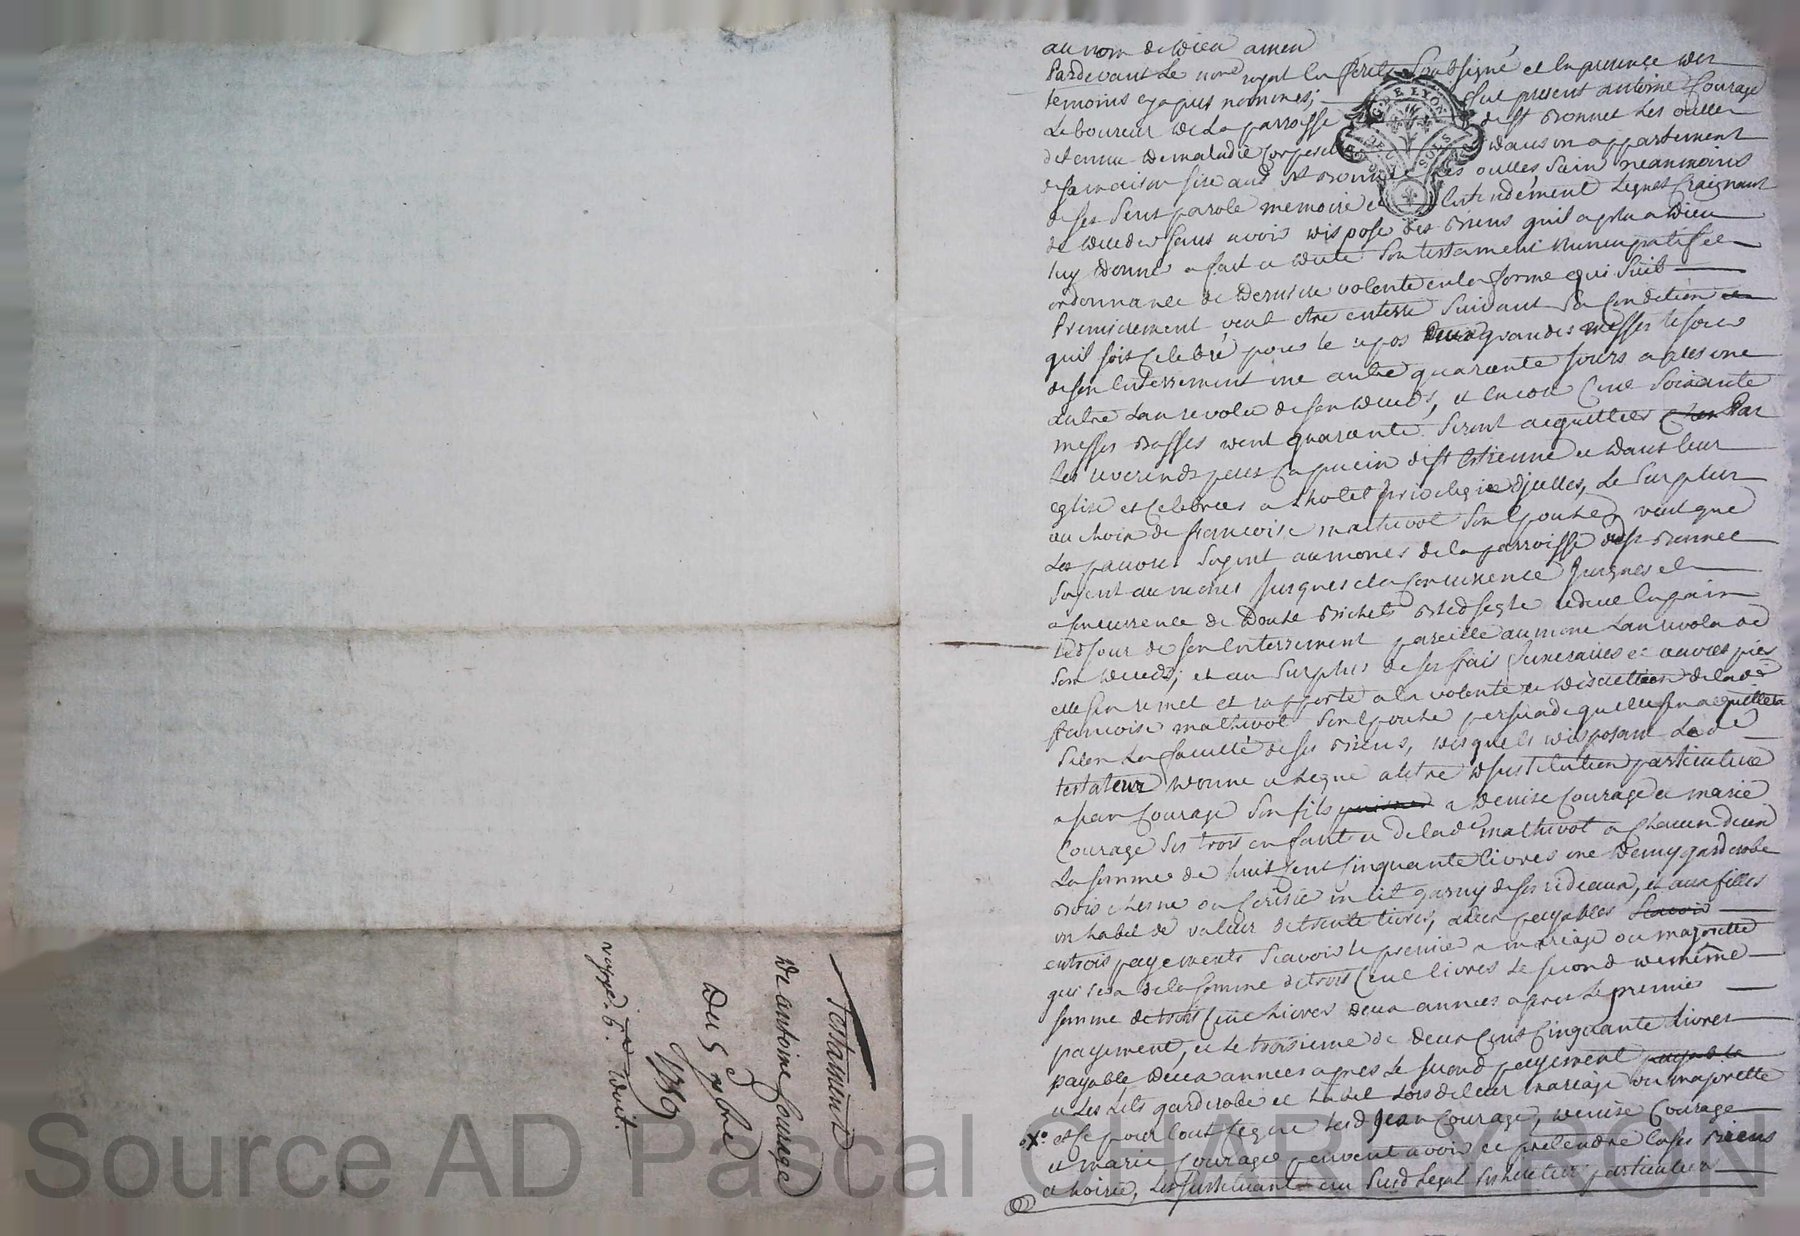 au nom de Dieu amen
Pardevant Le no.re royal en foretz Soubsigné et en presence des
temoins cy apres nommés; fut present antoine Courage
Laboureur de La parroisse de st Bonnet Les oulles
detenu de maladie Corporelle dans un appartement
de sa maison size aud. st Bonnet Les oulles, Sain neanmoins
de ses Sens parole memoire et Entendement Lequel Craignant
de deceder sans avoir dispose des Biens quil a plu a Dieu
luy donner a fait et dicté Son testament Nuncupatif et
ordonnance de derniere volonté en la forme qui Suit
Premierement veut etre enterré Suivant Sa Condition et
quil soit Celebré pour le repos grandes messes le jour
de son Enterrement une autre quarante jours apres une
autre Lan revolu de son deceds, et encore Cent Soixante
messes Basses dont quarante Seront acquittées Par
Les reverends peres Capucin de st Estienne et dans leur
eglise et Celebrées a Lhotel privilegié d'jcelles, Le Surplus
au choix de francoise mathivot Son Epouse, veut que
Les pauvres Soyent aumonés de la parroisse de st Bonnet
Soyent aumonés jusques a la Concurrence jusques et
a Concurrence de Douze Bichets Bled segle reduit en pain
led. jour de son Enterrement pareille aumone Lan revolu de
Son deceds, et au Surplus de ses frais funeraires et œuvres pies
elle sen remet et rapporte a la volonté et discretion de lad.e
francoise mathivot Son Epouse persuadé quelle sen acquittera
Selon La faculté de ses Biens, desquels disposant Led.
testateur donne et Legue a titre d'jnstitution particuliere
a jean Courage Son fils a denise Courage et marie
Courage Ses trois enfants et de lad.e mathivot a Chacun deux
La somme de huit Cent Cinquante Livres une demy garderobe
Bois chesne ou Cerisier un lit garny de ses rideaux, et aux filles
un habit de valeur de trente livres, payables Scavoir
en trois payements Scavoir le premier a mariage ou majorette
qui sera de la somme de trois Cent livres Le second de même
somme de trois Cent livres deux années apres Le premier
payement, et Le troisieme de deux Cent Cinquante Livres
payable deux années apres Le second payement payable
et Les Lits garderobe et habit Lors de leur mariage ou majorette
X et ce pour tout ce que lesd. Jean Courage, denise Courage
et marie Courage peuvent avoir et pretendre en ses Biens
et hoirie, Les jnstituant au Susd. Legat Ses heritiers particuliers
Testament
De antoine Courage
Du 5 7bre
1789
Source AD Pascal CHAREYRON